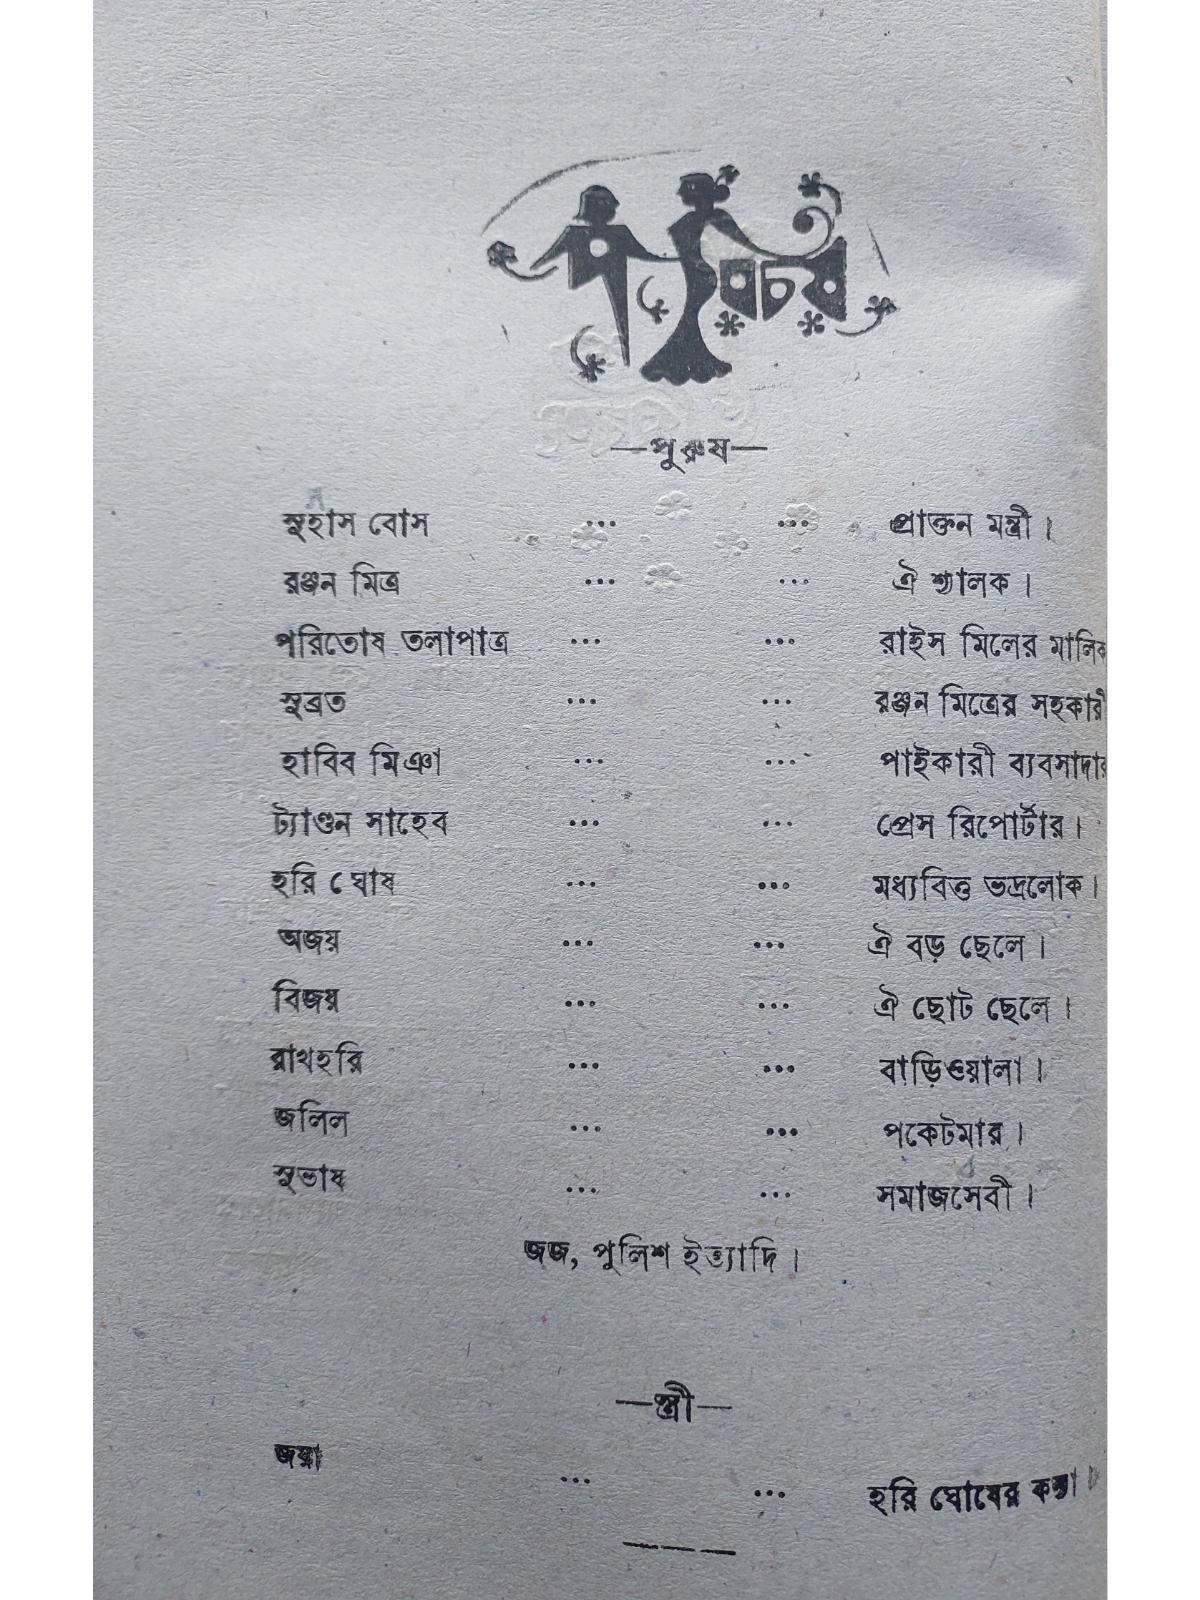 পরিচয়
—পুরুষ—
সুহাস বোস ... ... প্রাক্তন মন্ত্রী।
রঞ্জন মিত্র ... ... ঐ শ্যালক।
পরিতোষ তলাপাত্র ... ... রাইস মিলের মালিক
সুব্রত ... ... রঞ্জন মিত্রের সহকারী
হাবিব মিঞা ... ... পাইকারী ব্যবসাদার
ট্যাণ্ডন সাহেব ... ... প্রেস রিপোর্টার।
হরি ঘোষ ... ... মধ্যবিত্ত ভদ্রলোক।
অজয় ... ... ঐ বড় ছেলে।
বিজয় ... ... ঐ ছোট ছেলে।
রাখহরি ... ... বাড়িওয়ালা।
জলিল ... ... পকেটমার।
সুভাষ ... ... সমাজসেবী।
জজ, পুলিশ ইত্যাদি।
—স্ত্রী—
জয়া ... ... হরি ঘোষের কন্যা।